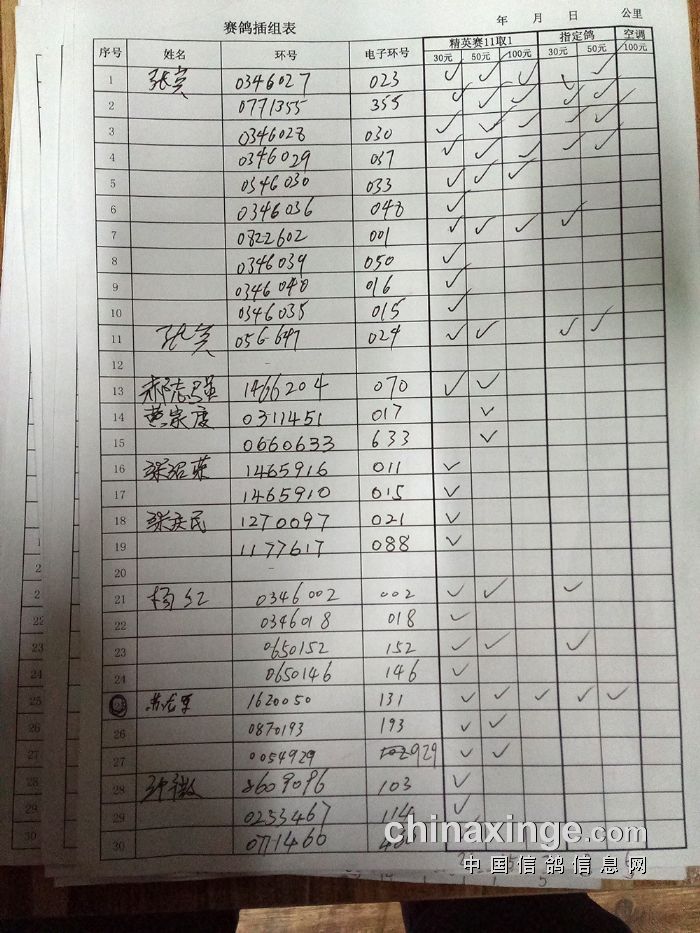 赛鸽插组表
年 月 日 公里
序号 姓名 环号 电子环号 精英赛11取1 指定鸽 空调
30元 50元 100元 30元 50元 100元
1 0346027 023 ✓ ✓ ✓ ✓ ✓
2 0771355 355 ✓ ✓ ✓ ✓ ✓
3 0346028 030 ✓ ✓ ✓ ✓ ✓
4 0346029 037 ✓ ✓ ✓ ✓ ✓
5 0346030 033 ✓ ✓ ✓
6 0346036 048 ✓
7 0822602 001 ✓ ✓ ✓ ✓
8 0346039 050 ✓
9 0346040 016 ✓
10 0346035 015 ✓
11 024 ✓ ✓ ✓ ✓
12
13 郝志强 1466204 070 ✓ ✓
14 黄家度 0311451 017 ✓
15 0660633 633 ✓
16 1465916 011 ✓
17 1465910 015 ✓
18 1270097 021 ✓
19 1177617 088 ✓
20
21 杨红 0346002 002 ✓ ✓ ✓
22 0346018 018 ✓
23 0650152 152 ✓ ✓ ✓
24 0650146 146 ✓
25 1620050 131 ✓ ✓ ✓ ✓ ✓
26 0870193 193 ✓ ✓
27 0054929 929 ✓ ✓
28 8609096 103 ✓
29 0233467 114 ✓
30 0771466
chinaxinge.com
中国信鸽信息网